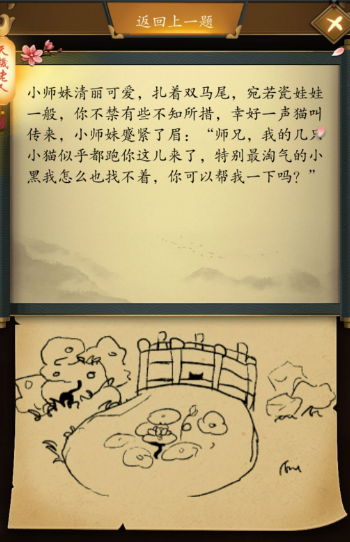 返回上一题
天諴老人
小师妹清丽可爱，扎着双马尾，宛若瓷娃娃
一般，你不禁有些不知所措，幸好一声猫叫
传来，小师妹蹙紧了眉：“师兄，我的几只
小猫似乎都跑你这儿来了，特别最淘气的小
黑我怎么也找不着，你可以帮我一下吗？”